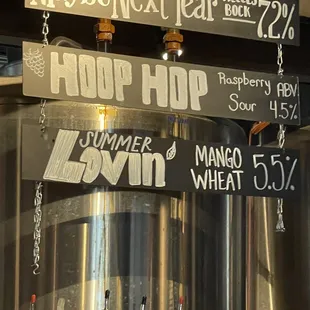 Next Year
BOCK 7.2%
HOOP HOP Raspberry ABV
Sour 4.5%
SUMMER
Lovin' MANGO
WHEAT 5.5%